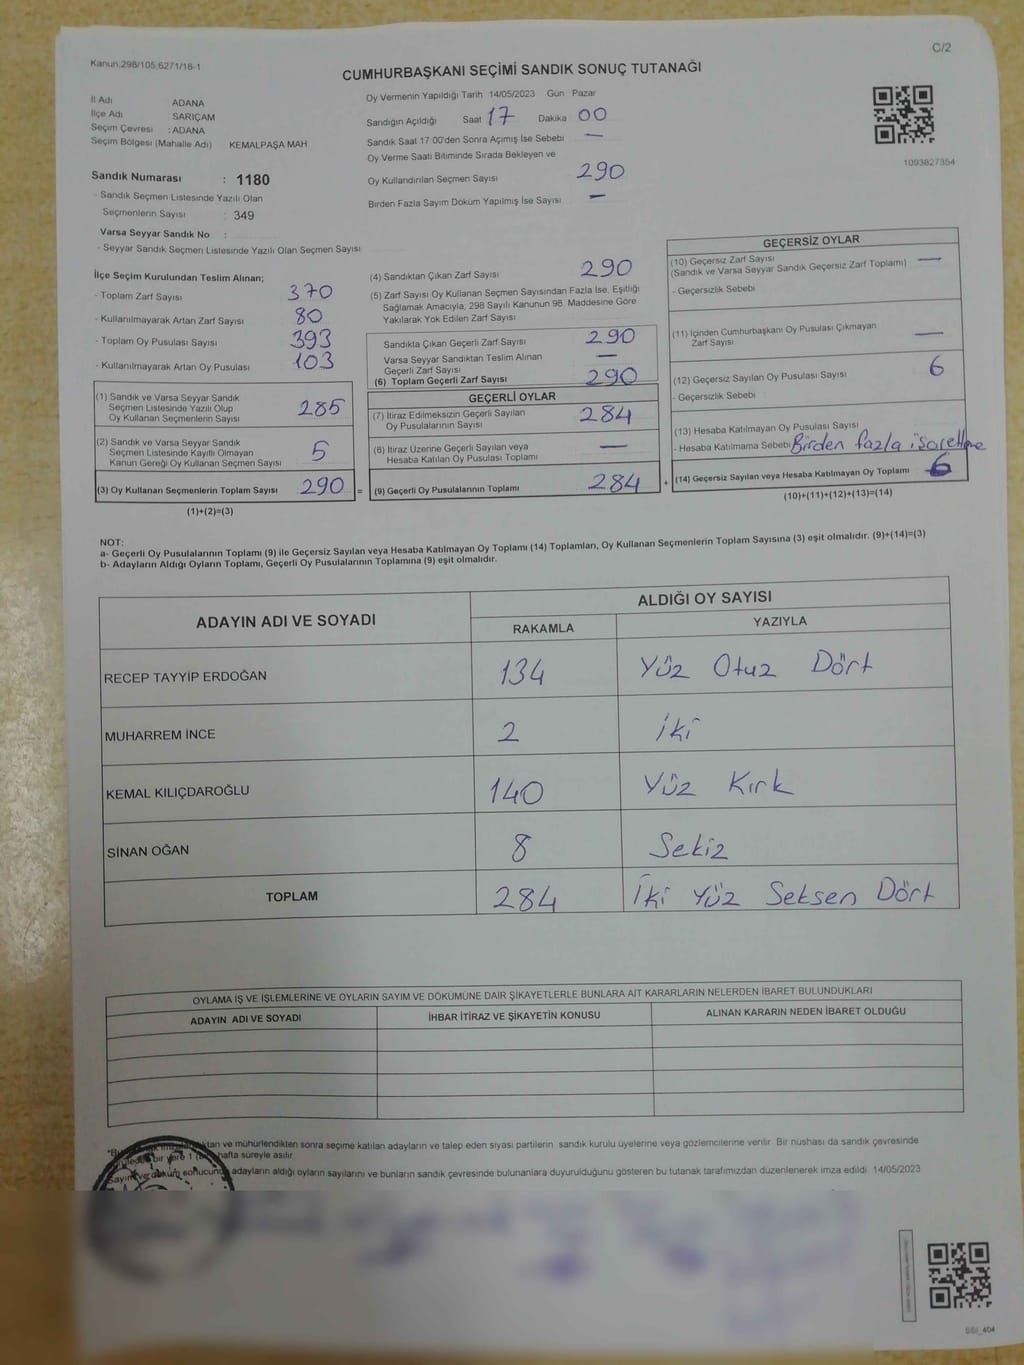 C/2
Kanun:298/105,6271/18-1
CUMHURBAŞKANI SEÇİMİ SANDIK SONUÇ TUTANAĞI
İl Adı ADANA
İlçe Adı SARIÇAM
Seçim Çevresi : ADANA
Seçim Bölgesi (Mahalle Adı) KEMALPAŞA MAH
Sandık Numarası : 1180
- Sandık Seçmen Listesinde Yazılı Olan
Seçmenlerin Sayısı : 349
Varsa Seyyar Sandık No :
- Seyyar Sandık Seçmen Listesinde Yazılı Olan Seçmen Sayısı
Oy Vermenin Yapıldığı Tarih 14/05/2023 Gün Pazar
Sandığın Açıldığı Saat 17 Dakika 00
Sandık Saat 17:00'den Sonra Açımış İse Sebebi —
Oy Verme Saati Bitiminde Sırada Bekleyen ve
Oy Kullandırılan Seçmen Sayısı 290
Birden Fazla Sayım Döküm Yapılmış İse Sayısı —
1093827354
İlçe Seçim Kurulundan Teslim Alınan;
- Toplam Zarf Sayısı 370
- Kullanılmayarak Artan Zarf Sayısı 80
- Toplam Oy Pusulası Sayısı 393
- Kullanılmayarak Artan Oy Pusulası 103
(1) Sandık ve Varsa Seyyar Sandık
Seçmen Listesinde Yazılı Olup
Oy Kullanan Seçmenlerin Sayısı 285
(2) Sandık ve Varsa Seyyar Sandık
Seçmen Listesinde Kayıtlı Olmayan
Kanun Gereği Oy Kullanan Seçmen Sayısı 5
(3) Oy Kullanan Seçmenlerin Toplam Sayısı 290 =
(1)+(2)=(3)
(4) Sandıktan Çıkan Zarf Sayısı 290
(5) Zarf Sayısı Oy Kullanan Seçmen Sayısından Fazla İse, Eşitliği
Sağlamak Amacıyla, 298 Sayılı Kanunun 98. Maddesine Göre
Yakılarak Yok Edilen Zarf Sayısı
Sandıkta Çıkan Geçerli Zarf Sayısı 290
Varsa Seyyar Sandıktan Teslim Alınan
Geçerli Zarf Sayısı —
(6) Toplam Geçerli Zarf Sayısı 290
GEÇERLİ OYLAR
(7) İtiraz Edilmeksizin Geçerli Sayılan
Oy Pusulalarının Sayısı 284
(8) İtiraz Üzerine Geçerli Sayılan veya
Hesaba Katılan Oy Pusulası Toplamı —
(9) Geçerli Oy Pusulalarının Toplamı 284 +
GEÇERSİZ OYLAR
(10) Geçersiz Zarf Sayısı —
(Sandık ve Varsa Seyyar Sandık Geçersiz Zarf Toplamı)
- Geçersizlik Sebebi
(11) İçinden Cumhurbaşkanı Oy Pusulası Çıkmayan
Zarf Sayısı —
(12) Geçersiz Sayılan Oy Pusulası Sayısı 6
- Geçersizlik Sebebi
(13) Hesaba Katılmayan Oy Pusulası Sayısı
- Hesaba Katılmama Sebebi Birden fazla işaretleme
(14) Geçersiz Sayılan veya Hesaba Katılmayan Oy Toplamı 6
(10)+(11)+(12)+(13)=(14)
NOT:
a- Geçerli Oy Pusulalarının Toplamı (9) ile Geçersiz Sayılan veya Hesaba Katılmayan Oy Toplamı (14) Toplamları, Oy Kullanan Seçmenlerin Toplam Sayısına (3) eşit olmalıdır. (9)+(14)=(3)
b- Adayların Aldığı Oyların Toplamı, Geçerli Oy Pusulalarının Toplamına (9) eşit olmalıdır.
ADAYIN ADI VE SOYADI ALDIĞI OY SAYISI
RAKAMLA YAZIYLA
RECEP TAYYİP ERDOĞAN 134 Yüz Otuz Dört
MUHARREM İNCE 2 İki
KEMAL KILIÇDAROĞLU 140 Yüz Kırk
SİNAN OĞAN 8 Sekiz
TOPLAM 284 İki Yüz Seksen Dört
OYLAMA İŞ VE İŞLEMLERİNE VE OYLARIN SAYIM VE DÖKÜMÜNE DAİR ŞİKAYETLERLE BUNLARA AİT KARARLARIN NELERDEN İBARET BULUNDUKLARI
ADAYIN ADI VE SOYADI İHBAR İTİRAZ VE ŞİKAYETİN KONUSU ALINAN KARARIN NEDEN İBARET OLDUĞU
ve mühürlendikten sonra seçime katılan adayların ve talep eden siyasi partilerin sandık kurulu üyelerine veya gözlemcilerine verilir. Bir nüshası da sandık çevresinde
bir yere 1 hafta süreyle asılır.
Sayım ve döküm sonucunda adayların aldığı oyların sayılarını ve bunların sandık çevresinde bulunanlara duyurulduğunu gösteren bu tutanak tarafımızdan düzenlenerek imza edildi 14/05/2023
SSI_404